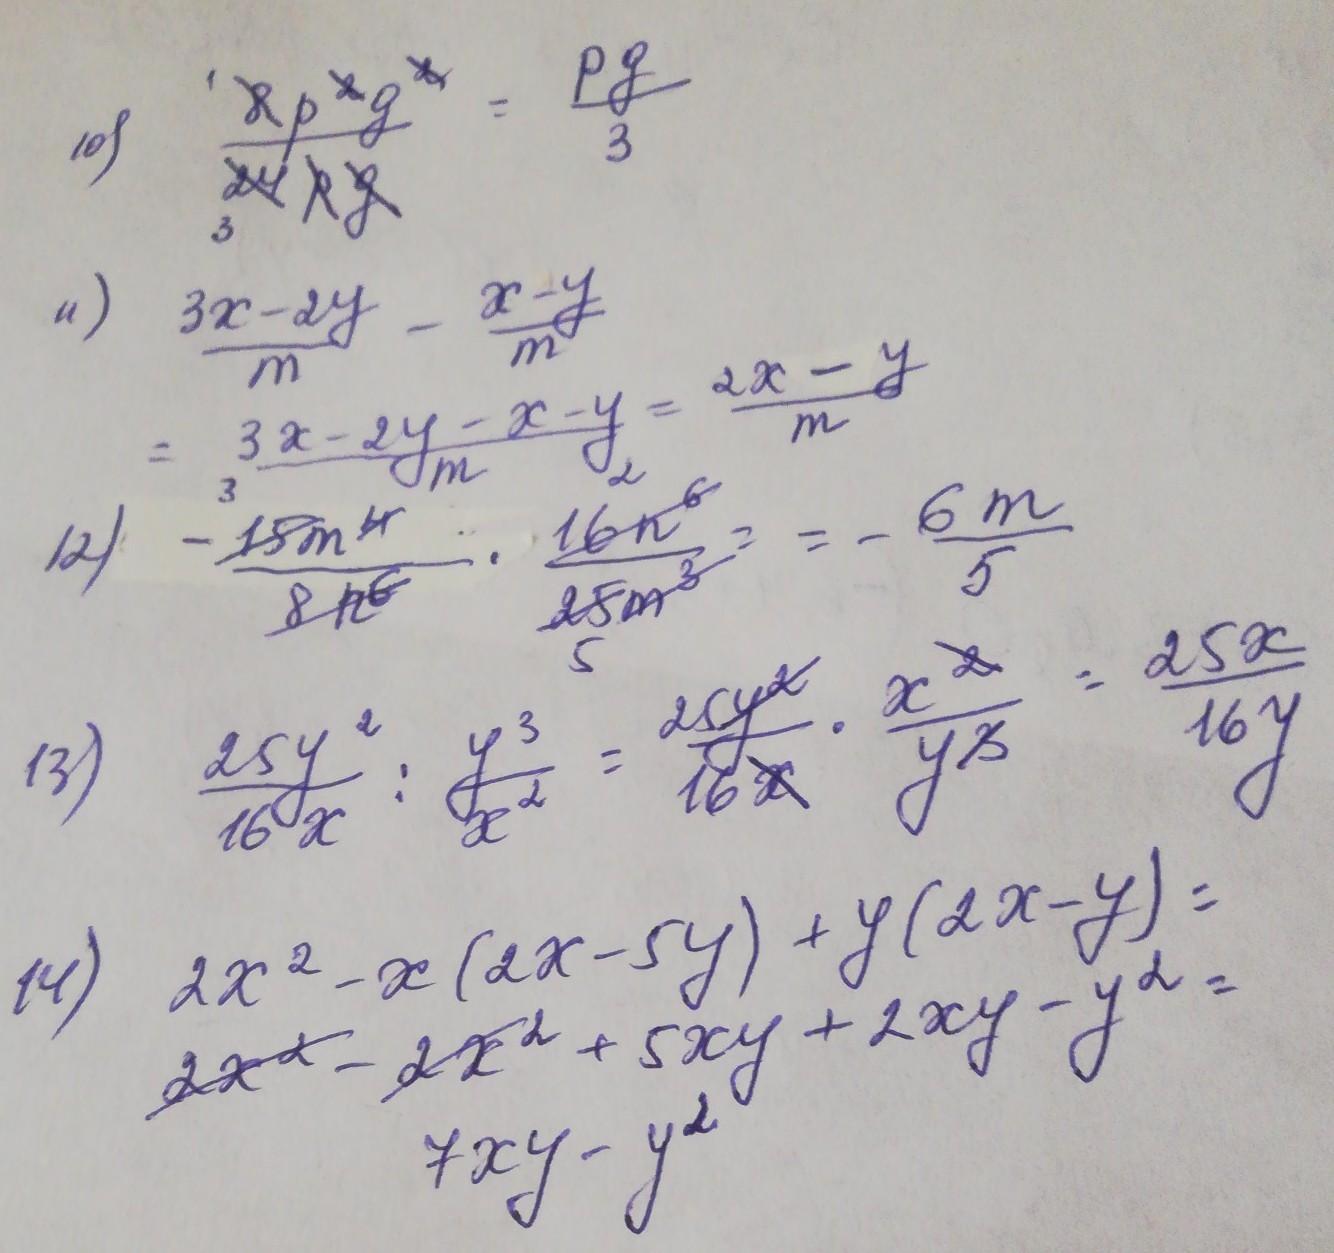 10) 8p²g²/24pg = pg/3
1
3
11) 3x-2y/m - x-y/m
= 3x-2y-x-y/m = 2x-y/m
3 2
12) -15m⁴/8n⁶ · 16n⁶/25m³ = = - 6m/5
5
13) 25y²/16x : y³/x² = 25y²/16x · x²/y³ = 25x/16y
14) 2x² - x(2x-5y) + y(2x-y) =
2x² - 2x² + 5xy + 2xy - y² =
7xy - y²